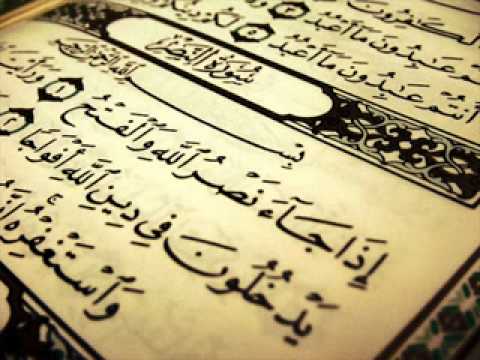 الْكَٰفِرُونَ
تُمْ عَٰبِدُونَ مَآ أَعْبُدُ ٣
أَنتُمْ عَٰبِدُونَ مَآ أَعْبُدُ ٥ لَكُمْ دِينُكُمْ
سُورَةُ النَّصْرِ
بِسْ اللَّهِ الرَّحْمَٰنِ الرَّحِيمِ
إِذَا جَآءَ نَصْرُ ٱللَّهِ وَٱلْفَتْحُ ١ وَرَأَيْتَ
يَدْخُلُونَ فِى دِينِ ٱللَّهِ أَفْوَاجًا ٢
وَٱسْتَغْفِرْهُ إِنَّهُ